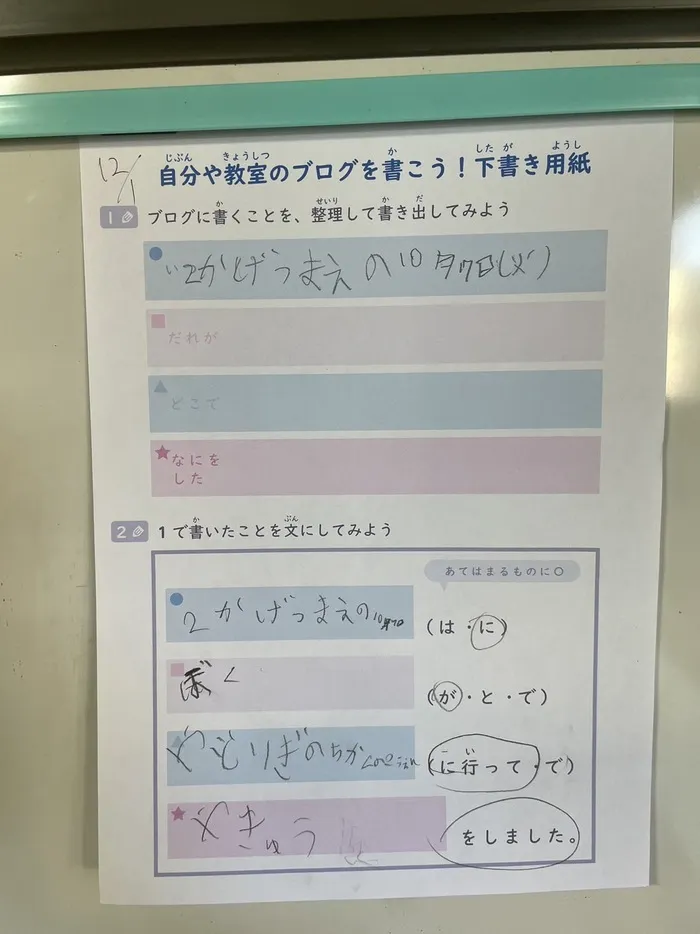 12/1
自分や教室のブログを書こう！下書き用紙
1 ブログに書くことを、整理して書き出してみよう
2かげつまえの10月7日(火)
だれが
どこで
なにを
した
2 1で書いたことを文にしてみよう
あてはまるものに○
2かげつまえの10月7日 (は・に)
ぼく (が・と・で)
やどりぎのちかくの (に行って・で)
やきゅう をしました。